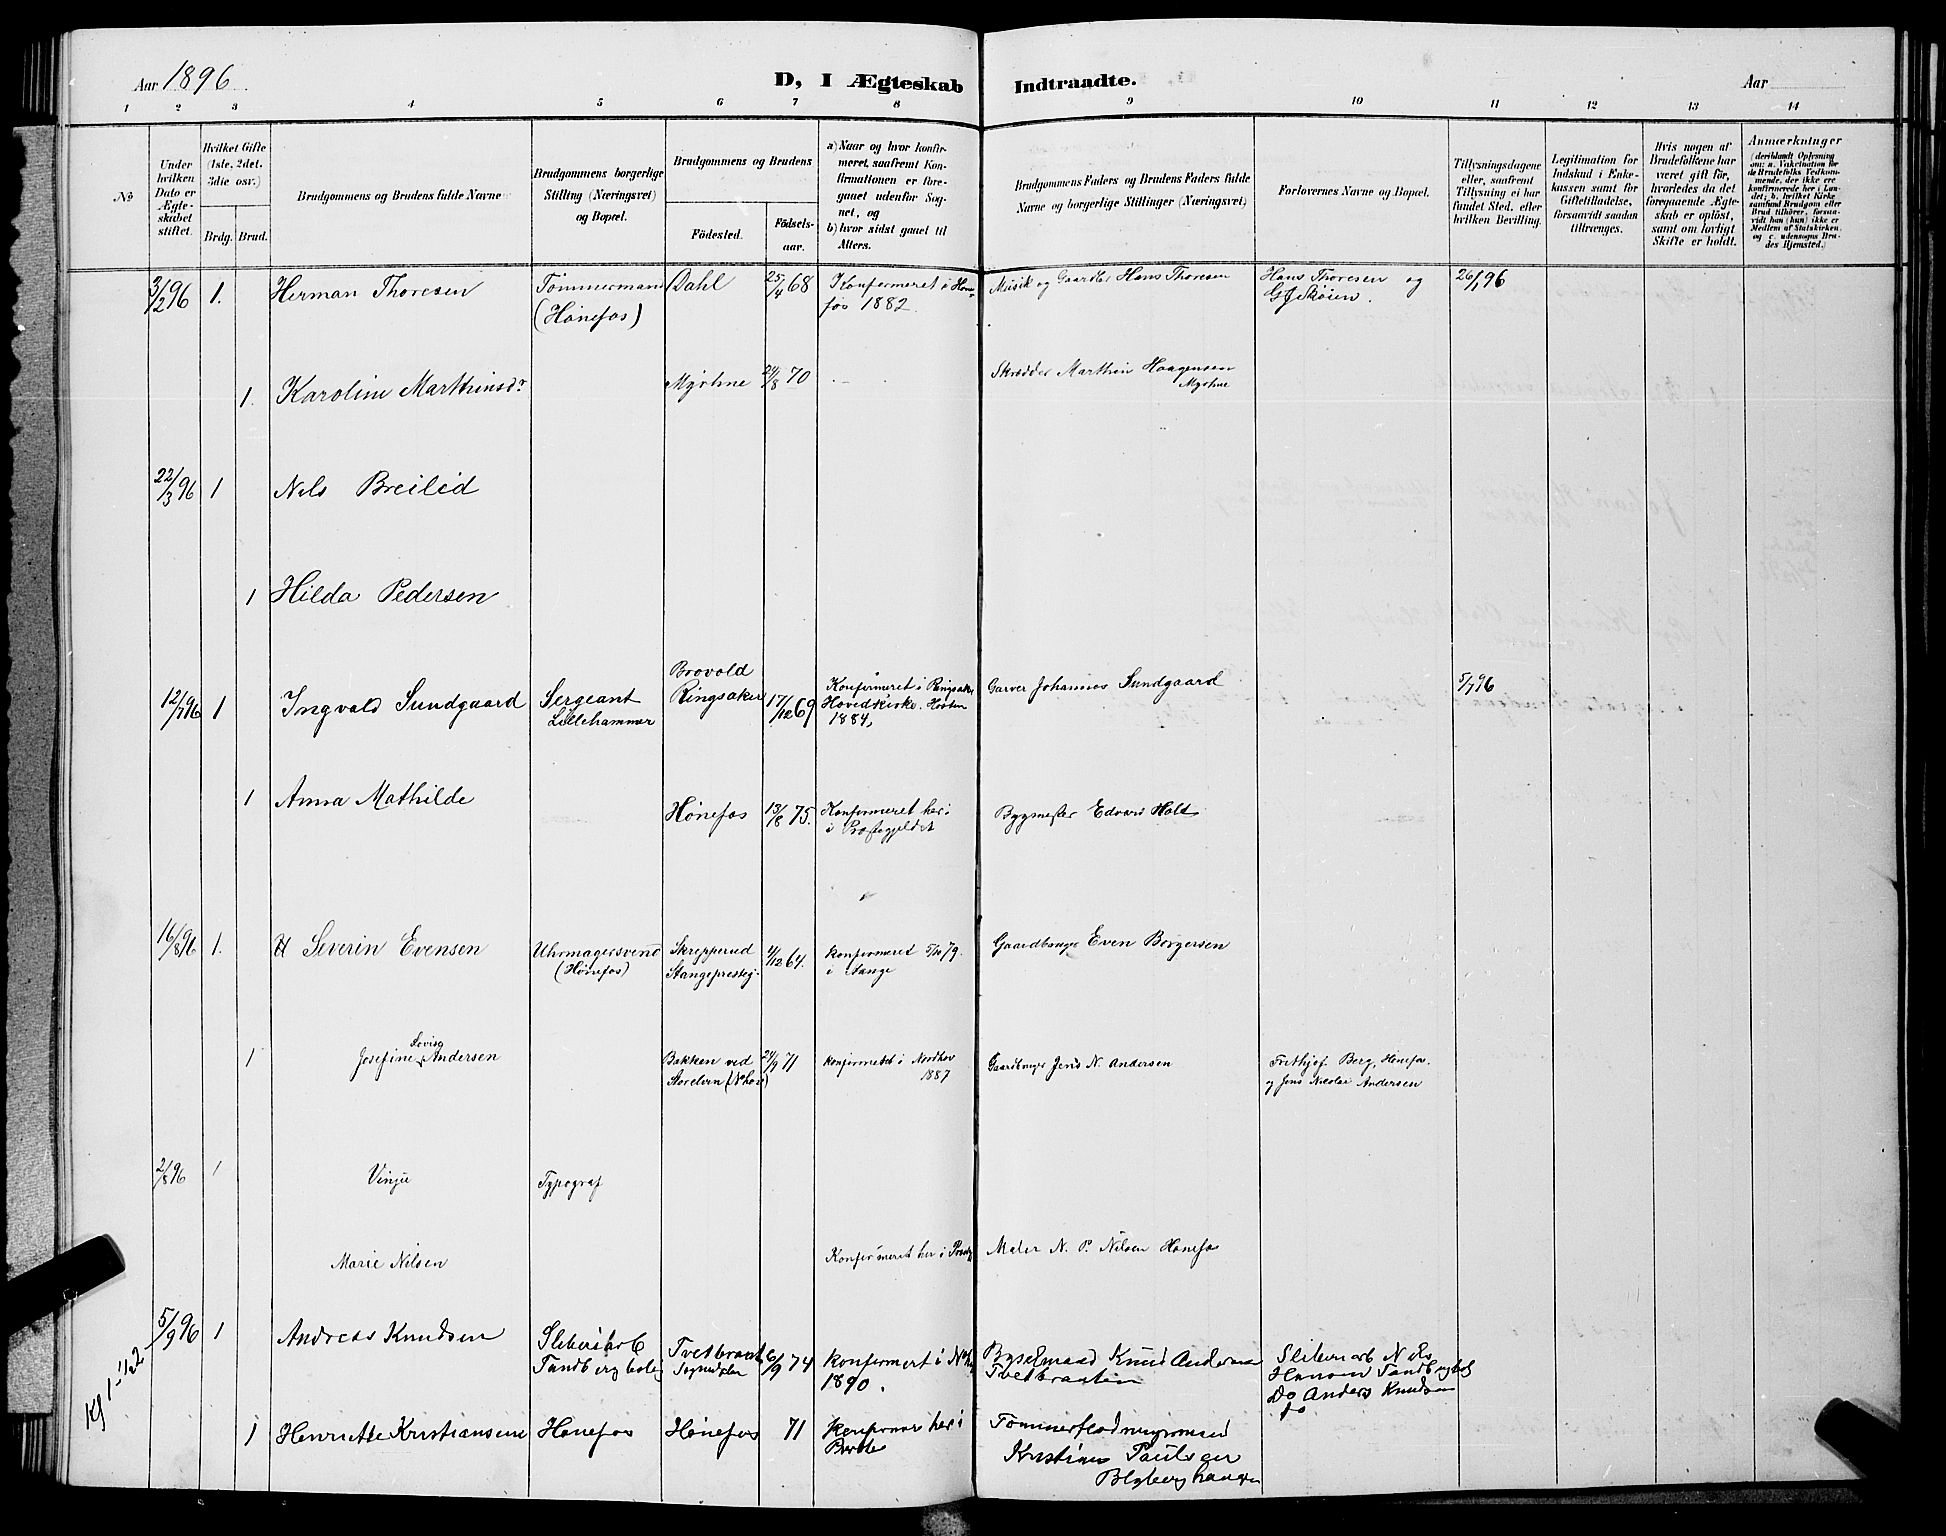 Aar 1896.
D, I Ægteskab Indtraadte.
Aar
1 2 3 4 5 6 7 8 9 10 11 12 13 14
No
Under hvilken Dato er Ægteskabet stiftet.
Hvilket Gifte (1ste, 2det, 3die osv.)
Brdg. Brud.
Brudgommens og Brudens fulde Navne
Brudgommens borgerlige Stilling (Næringsvei) og Bopæl.
Brudgommens og Brudens
Födested.
Födselsaar.
a) Naar og hvor konfirmeret, saafremt Konfirmationen er foregaaet udenfor Sognet, og
b) hvor sidst gaaet til Alters.
Brudgommens Faders og Brudens Faders fulde Navne og borgerlige Stillinger (Næringsvei)
Forlovernes Navne og Bopæl.
Tillysningsdagene eller, saafremt Tillysning ei har fundet Sted, efter hvilken Bevilling.
Legitimation for Indskud i Enkekassen samt for Giftetilladelse, forsaavidt saadan tiltrænges.
Hvis nogen af Brudefolkene har været gift før, hvorledes da det foregaaende Ægteskab er oplöst, samt om lovligt Skifte er holdt.
Anmærkninger
(deriblandt Oplysning om: a. Vakcination for de Brudefolks Vedkommende, der ikke ere konfirmerede her i Landet; b. hvilket Kirkesamfund Brudgom eller Brud tilhörer, forsaavidt han (hun) ikke er Medlem af Statskirken, og c. udensogns Brudes Hjemsted.)
3/2 96 1. Herman Thoresen Tømmermand Dahl 25/4 68 Konfirmeret i Høne- Musik og Gaardbr Hans Thoresen Hans Thoresen og 26/1 96
(Hønefos) fos 1882. G Skøien.
1. Karoline Marthinsdr Myhrne 24/8 70 . - Skrædder Marthin Haagensen
Myrhne
22/3 96 1 Nils Breilid
1 Hilda Pedersen
Brovold
12/7 96 1 Ingvald Sundgaard Sergeant Ringsaker 17/12 69 Konfirmeret i Ringsaker Garver Johannes Sundgaard 5/7 96
Lillehammer Hovedkirke. Høsten
1884,
1 Anna Mathilde Hønefos 13/8 75. Konfirmeret her i Bygmester Edvard Holt
i Præstegjeldet
16/8 96 1. H Severin Evensen Uhrmagersvend Skrepperud 4/12 64. konfirmeret 5/10 79. Gaardbruger Even Borgersen
(Hønefos) Stangeprestegj. i Stange
Lovise
1 Josefine Andersen Bakken ved 24/9 71 konfirmeret i Nordhov Gaardbruger Jens N. Andersen Frithjof Berg, Hønefos.
Storelven (Nhov) 1887 og Jens Nicolai Andersen
2/8 96 1 Vinje Typograf
Marie Nilsen Konfirmeret her i Prestg Maler N. P. Nilsen Hønefos
Kf 1-1/2
5/9 96 1 Andreas Knudsen Sliberiarb Tvetbraat 6/9 74 konfirmert i Nhov Bygselmand Knud Andersen Sliberiarb Nils
Tandberg Sognedalen 1890. Tvetbraaten Hansen Tandberg
Do Anders Knudsen
do
1 Henriette Kristiansen Hønefos Hønefos 71 konfirmer her i Tømmerflødningsmand
Kristian Paulsen
Blyberghaugen